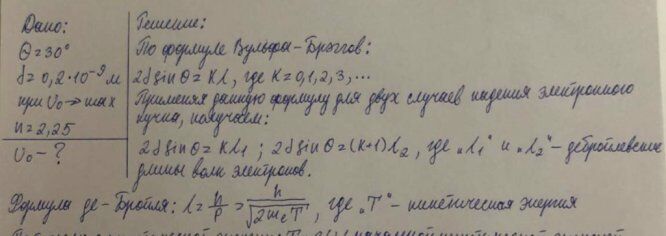 Дано:
θ=30°
d=0,2·10⁻⁹ м
при U₀→max
n=2,25
U₀-?
Решение:
По формуле Вульфа-Брэггов:
2d sin θ = Kλ, где K=0,1,2,3,...
Применяя данную формулу для двух случаев падения электронного
пучка, получаем:
2d sin θ = Kλ₁; 2d sin θ = (K+1)λ₂, где „λ₁" и „λ₂" - дебройлевские
длины волн электронов.
Формула де-Бройля: λ = h/p = h/√2mₑT, где „T" - кинетическая энергия